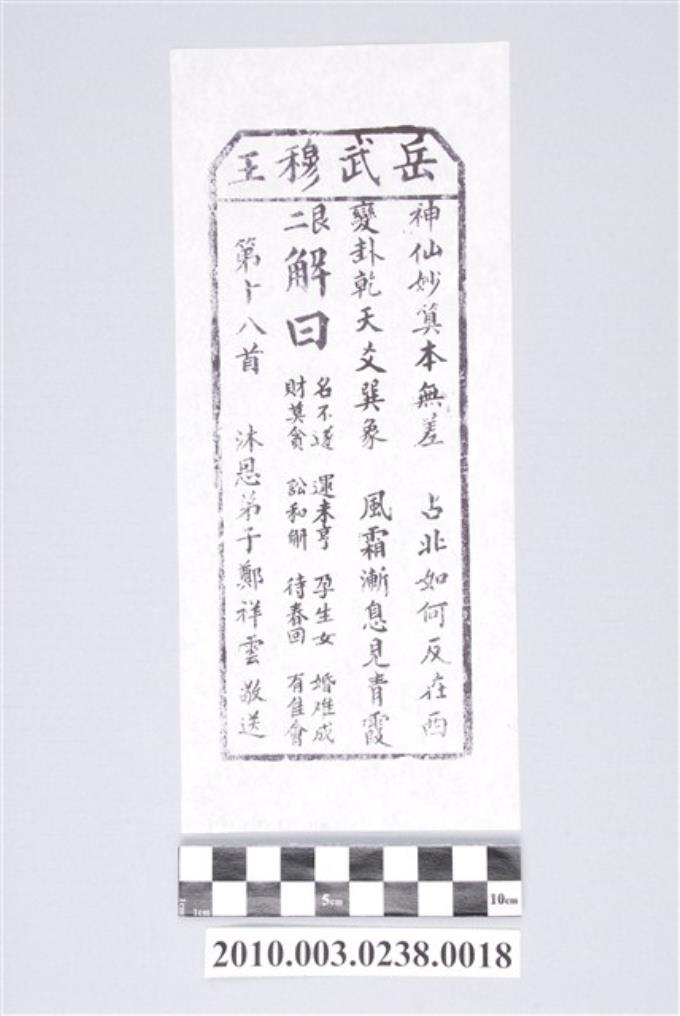 岳武穆王
神仙妙算本無差　占北如何反在西
變卦乾天爻巽象　風霜漸息見青霞
艮二
解曰
名不遂　運未亨　孕生女　婚难成
財莫貪　訟和解　待春回　有佳會
第十八首　沐恩弟子鄭祥雲敬送
1cm
1cm
5cm
10cm
2010.003.0238.0018